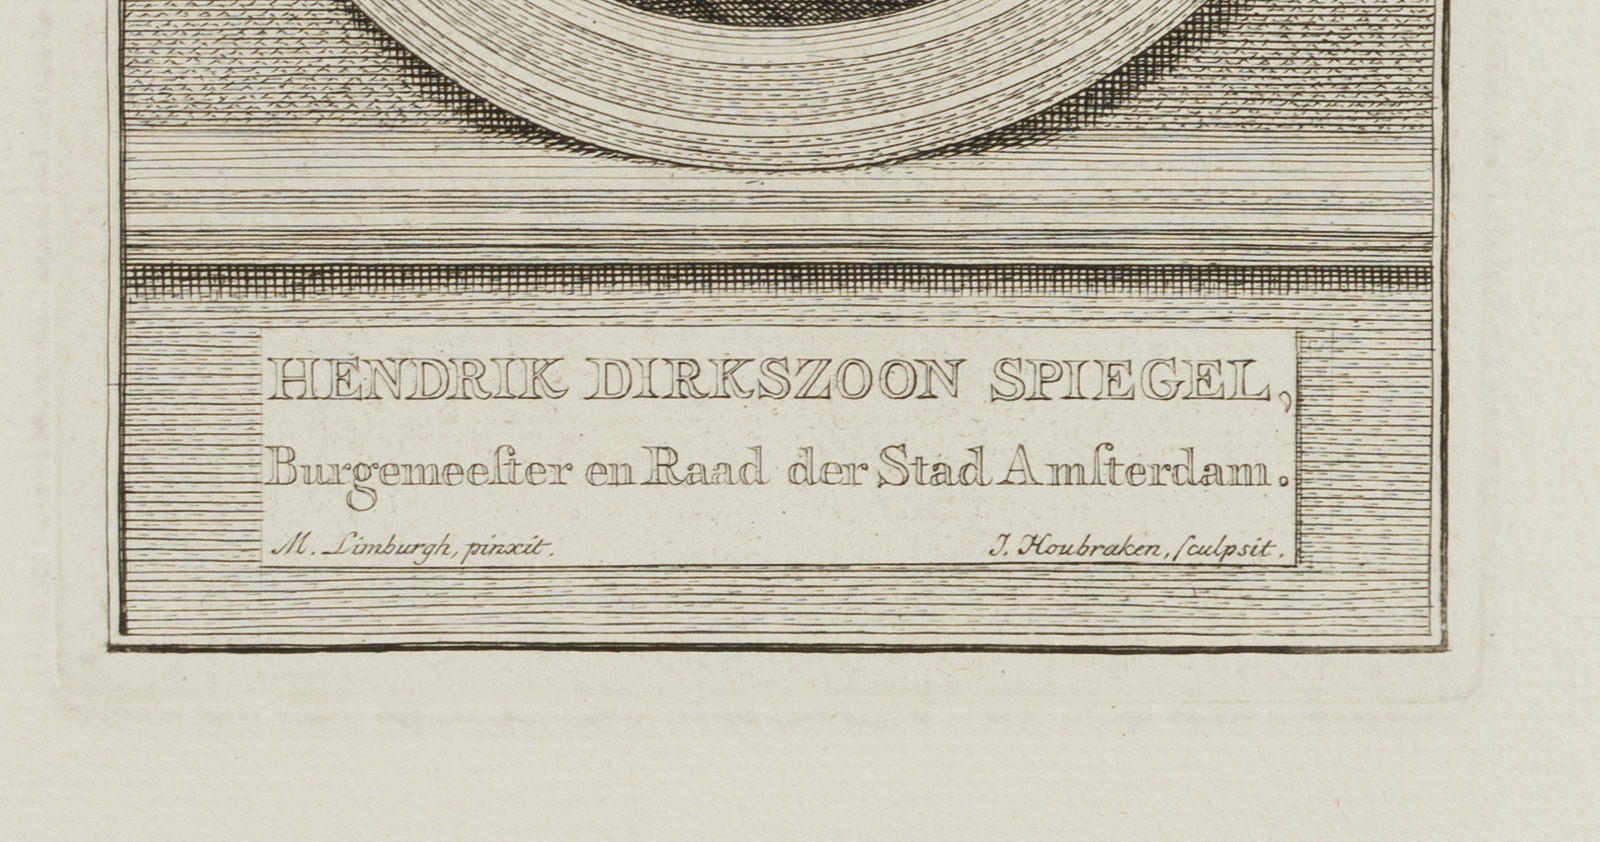 HENDRIK DIRKSZOON SPIEGEL,
Burgemeeſter en Raad der Stad Amſterdam.
M. Limburgh, pinxit. J. Houbraken, ſculpsit.